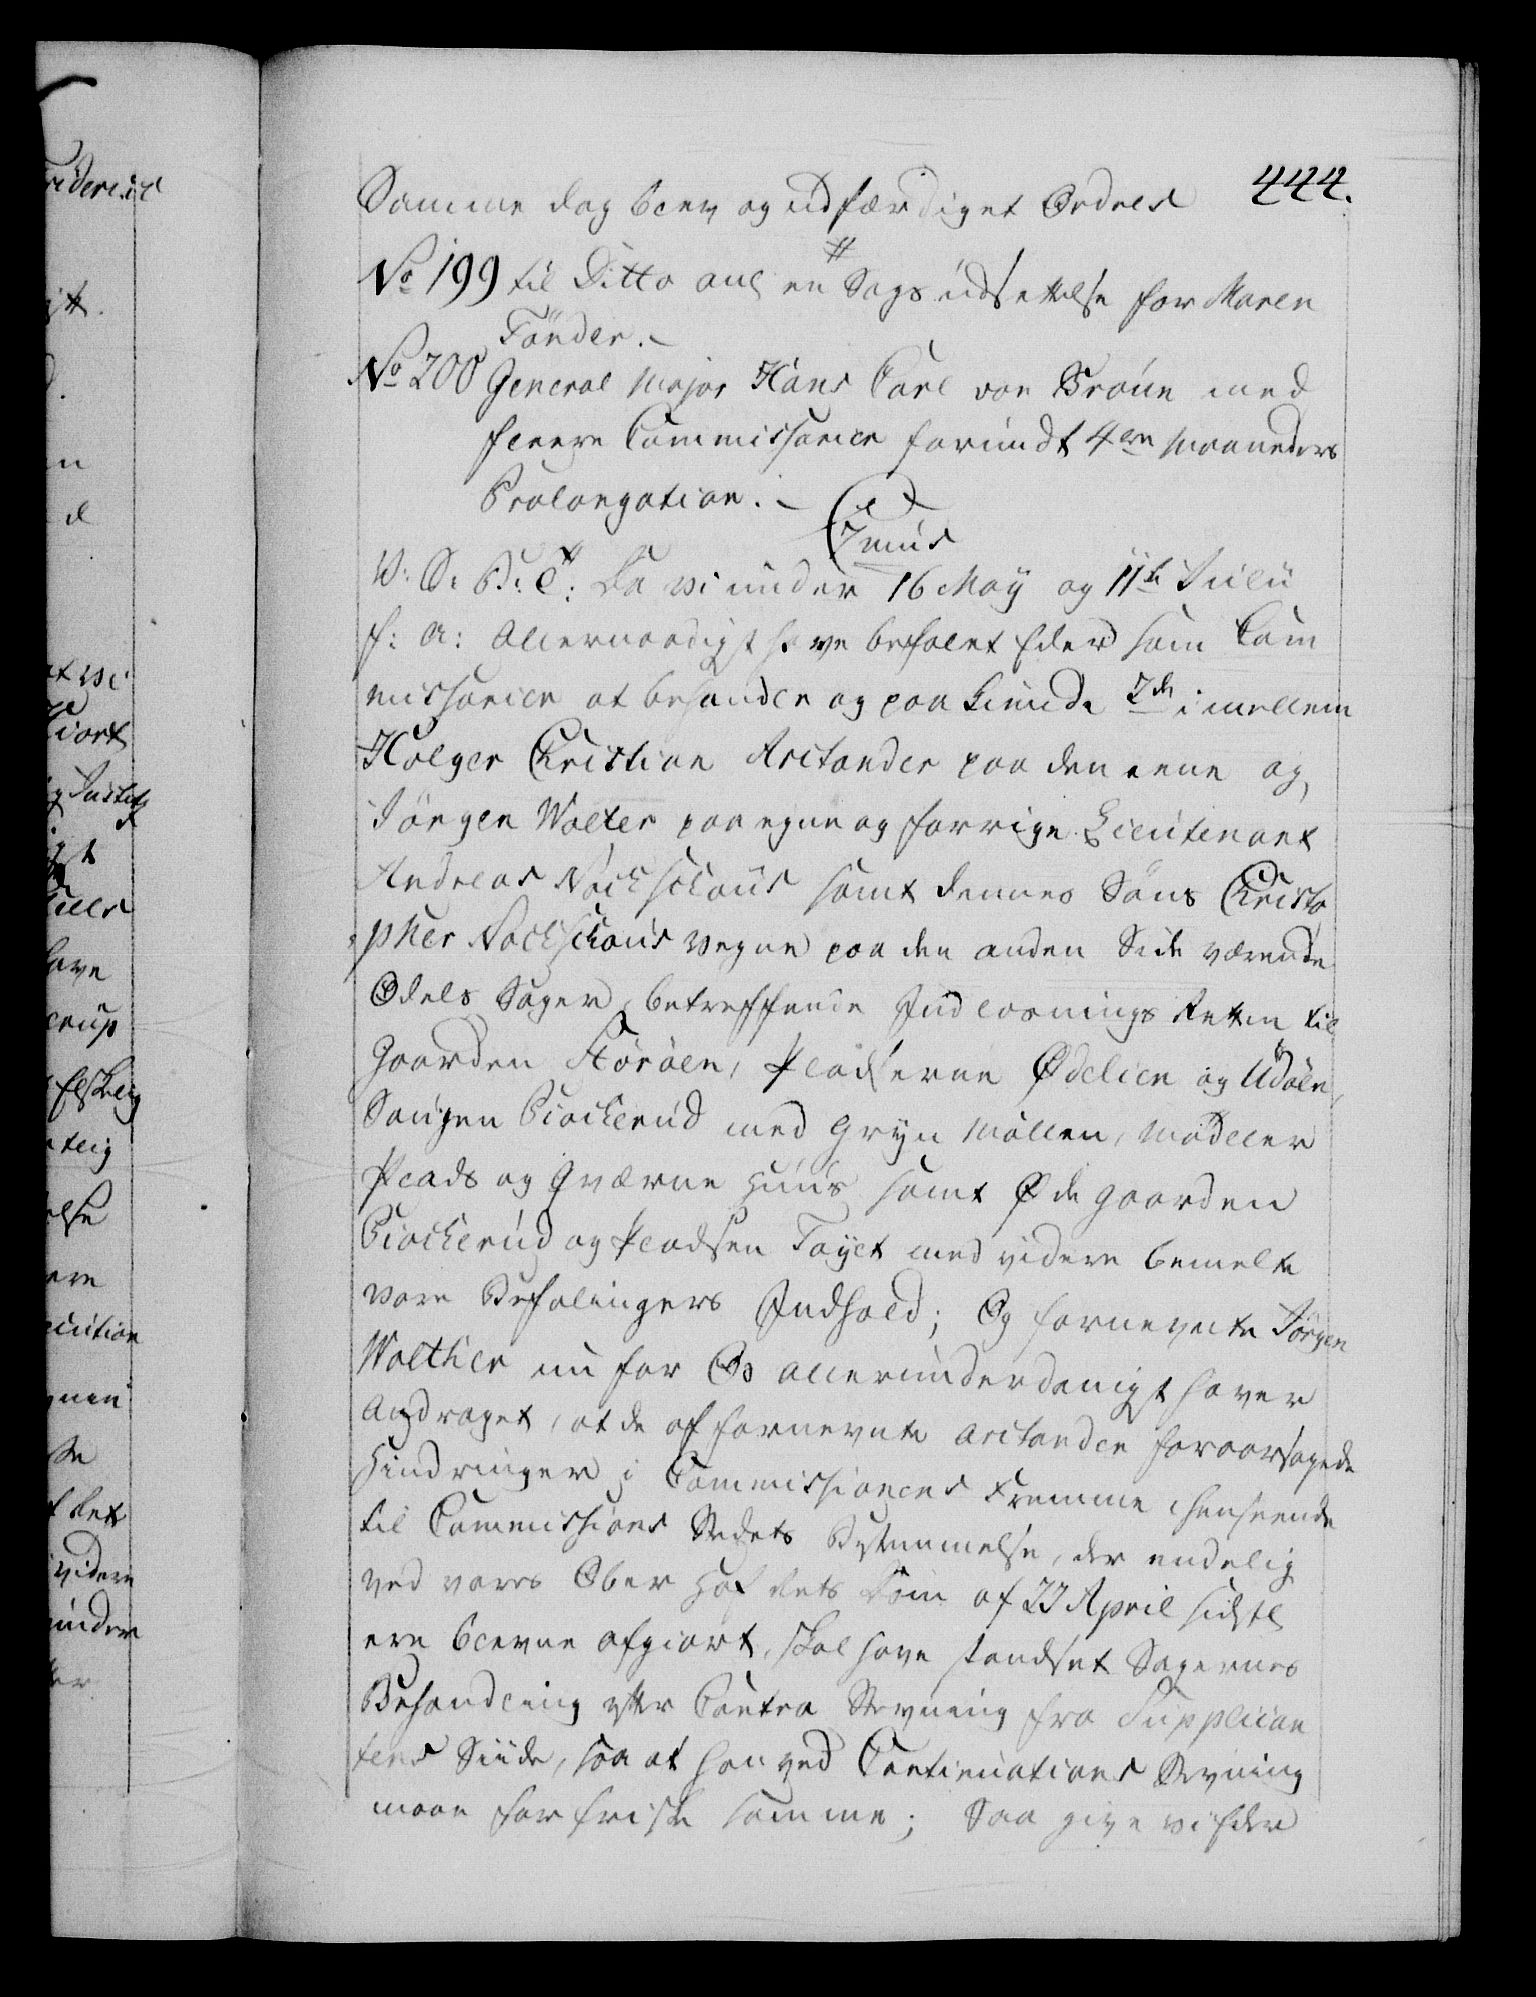 444.
Samme dag blev og udfærdiget Ordres
No 199 til Ditto anl en Sags udsettelse for Maren
Tønder.-
No 200 General Major Hans Carl von Bruun med
fleere Commissarier forundt 4re Maaneders
Prolongation.-
Junis
V: G: B: Da vi under 16 May og 11te Julii
f: A: Allernaadigst have befalet Eder som Com
missarier at behandle og paa kiende 2de imellem
Holger Christian Arctander paa den eene og
Jørgen Wolter paa egne og forrige Lieutenant
Andreas Nachschous samt dennes Søns Christo
pher Nachschous vegne paa den anden Side værende
Odels Sager betreffende Indløsnings Retten til
Gaarden Storøen, Pladserne Ødelien og Udøen,
Saugen Biockerud med Gryn Møllen, Mødeler
Plads og Qværne Huus samt Øde gaarden
Biockerud og Pladsen Føyet med videre bemelte
vore Befalingers Indhold; Og fornevnte Jørgen
Wolther nu for Os allerunderdanigst haver
Andraget, at de af fornevnte Arctander foraarsagede
Hindringer i Commissionens Fremme i henseende
til Commissions Stedets Bestemmelse, der endelig
ved vores Ober Hof Rets Dom af 23 April sidstl
ere blevne afgiort, skal have standset Sagernes
Behandling efter Contra Stevning fra Supplican
tens Siide, saa at han ved Continuations Stevning
maae forfriske samme; Saa give vi Eder